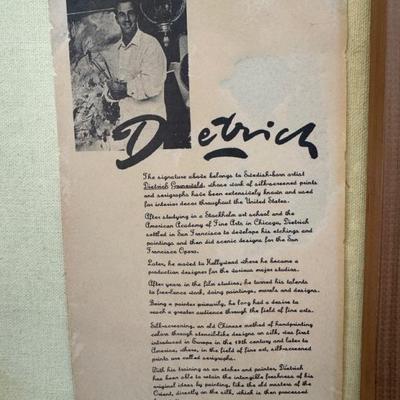 Dietrich
The signature above belongs to Swedish-born artist
Dietrich Grunewald, whose work of silk-screened prints
and serigraphs have been extensively known and used
for interior decor throughout the United States.
After studying in a Stockholm art school and the
American Academy of Fine Arts in Chicago, Dietrich
settled in San Francisco to develope his etchings and
paintings and then did scenic designs for the San
Francisco Opera.
Later, he moved to Hollywood where he became a
production designer for the various major studios.
After years in the film studios, he turned his talents
to free-lance work, doing paintings, murals and designs.
Being a painter primarily, he long had a desire to
reach a greater audience through the field of fine arts.
Silk-screening, an old Chinese method of handprinting
colors through stencil-like designs on silk, was first
introduced in Europe in the 19th century and later to
America, where, in the field of fine art, silk-screened
prints are called serigraphs.
With his training as an etcher and painter, Dietrich
has been able to retain the intangible freshness of his
original ideas by painting, like the old masters of the
Orient, directly on the silk, which is then processed